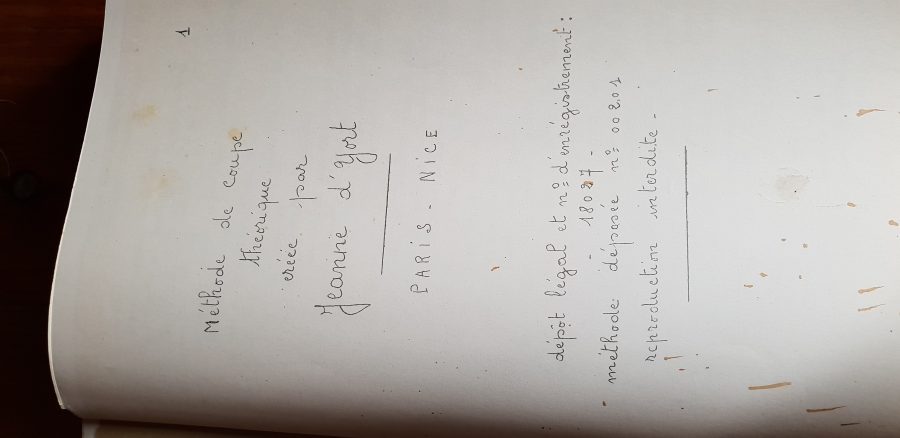 1
Méthode de coupe
théorique
créée par
Jeanne d'Yort
PARIS - NICE
dépôt légal et n° d'enrégistrement :
- 18027 -
méthode déposée n° 00201
reproduction interdite -